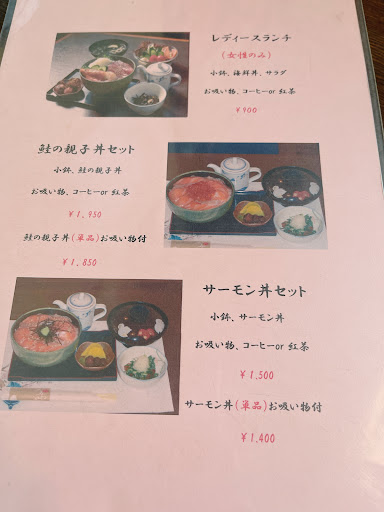 レディースランチ
(女性のみ)
小鉢、海鮮丼、サラダ
お吸い物、コーヒーor 紅茶
￥900
鮭の親子丼セット
小鉢、鮭の親子丼
お吸い物、コーヒーor 紅茶
￥1,950
鮭の親子丼(単品)お吸い物付
￥1,850
サーモン丼セット
小鉢、サーモン丼
お吸い物、コーヒーor 紅茶
￥1,500
サーモン丼(単品)お吸い物付
￥1,400